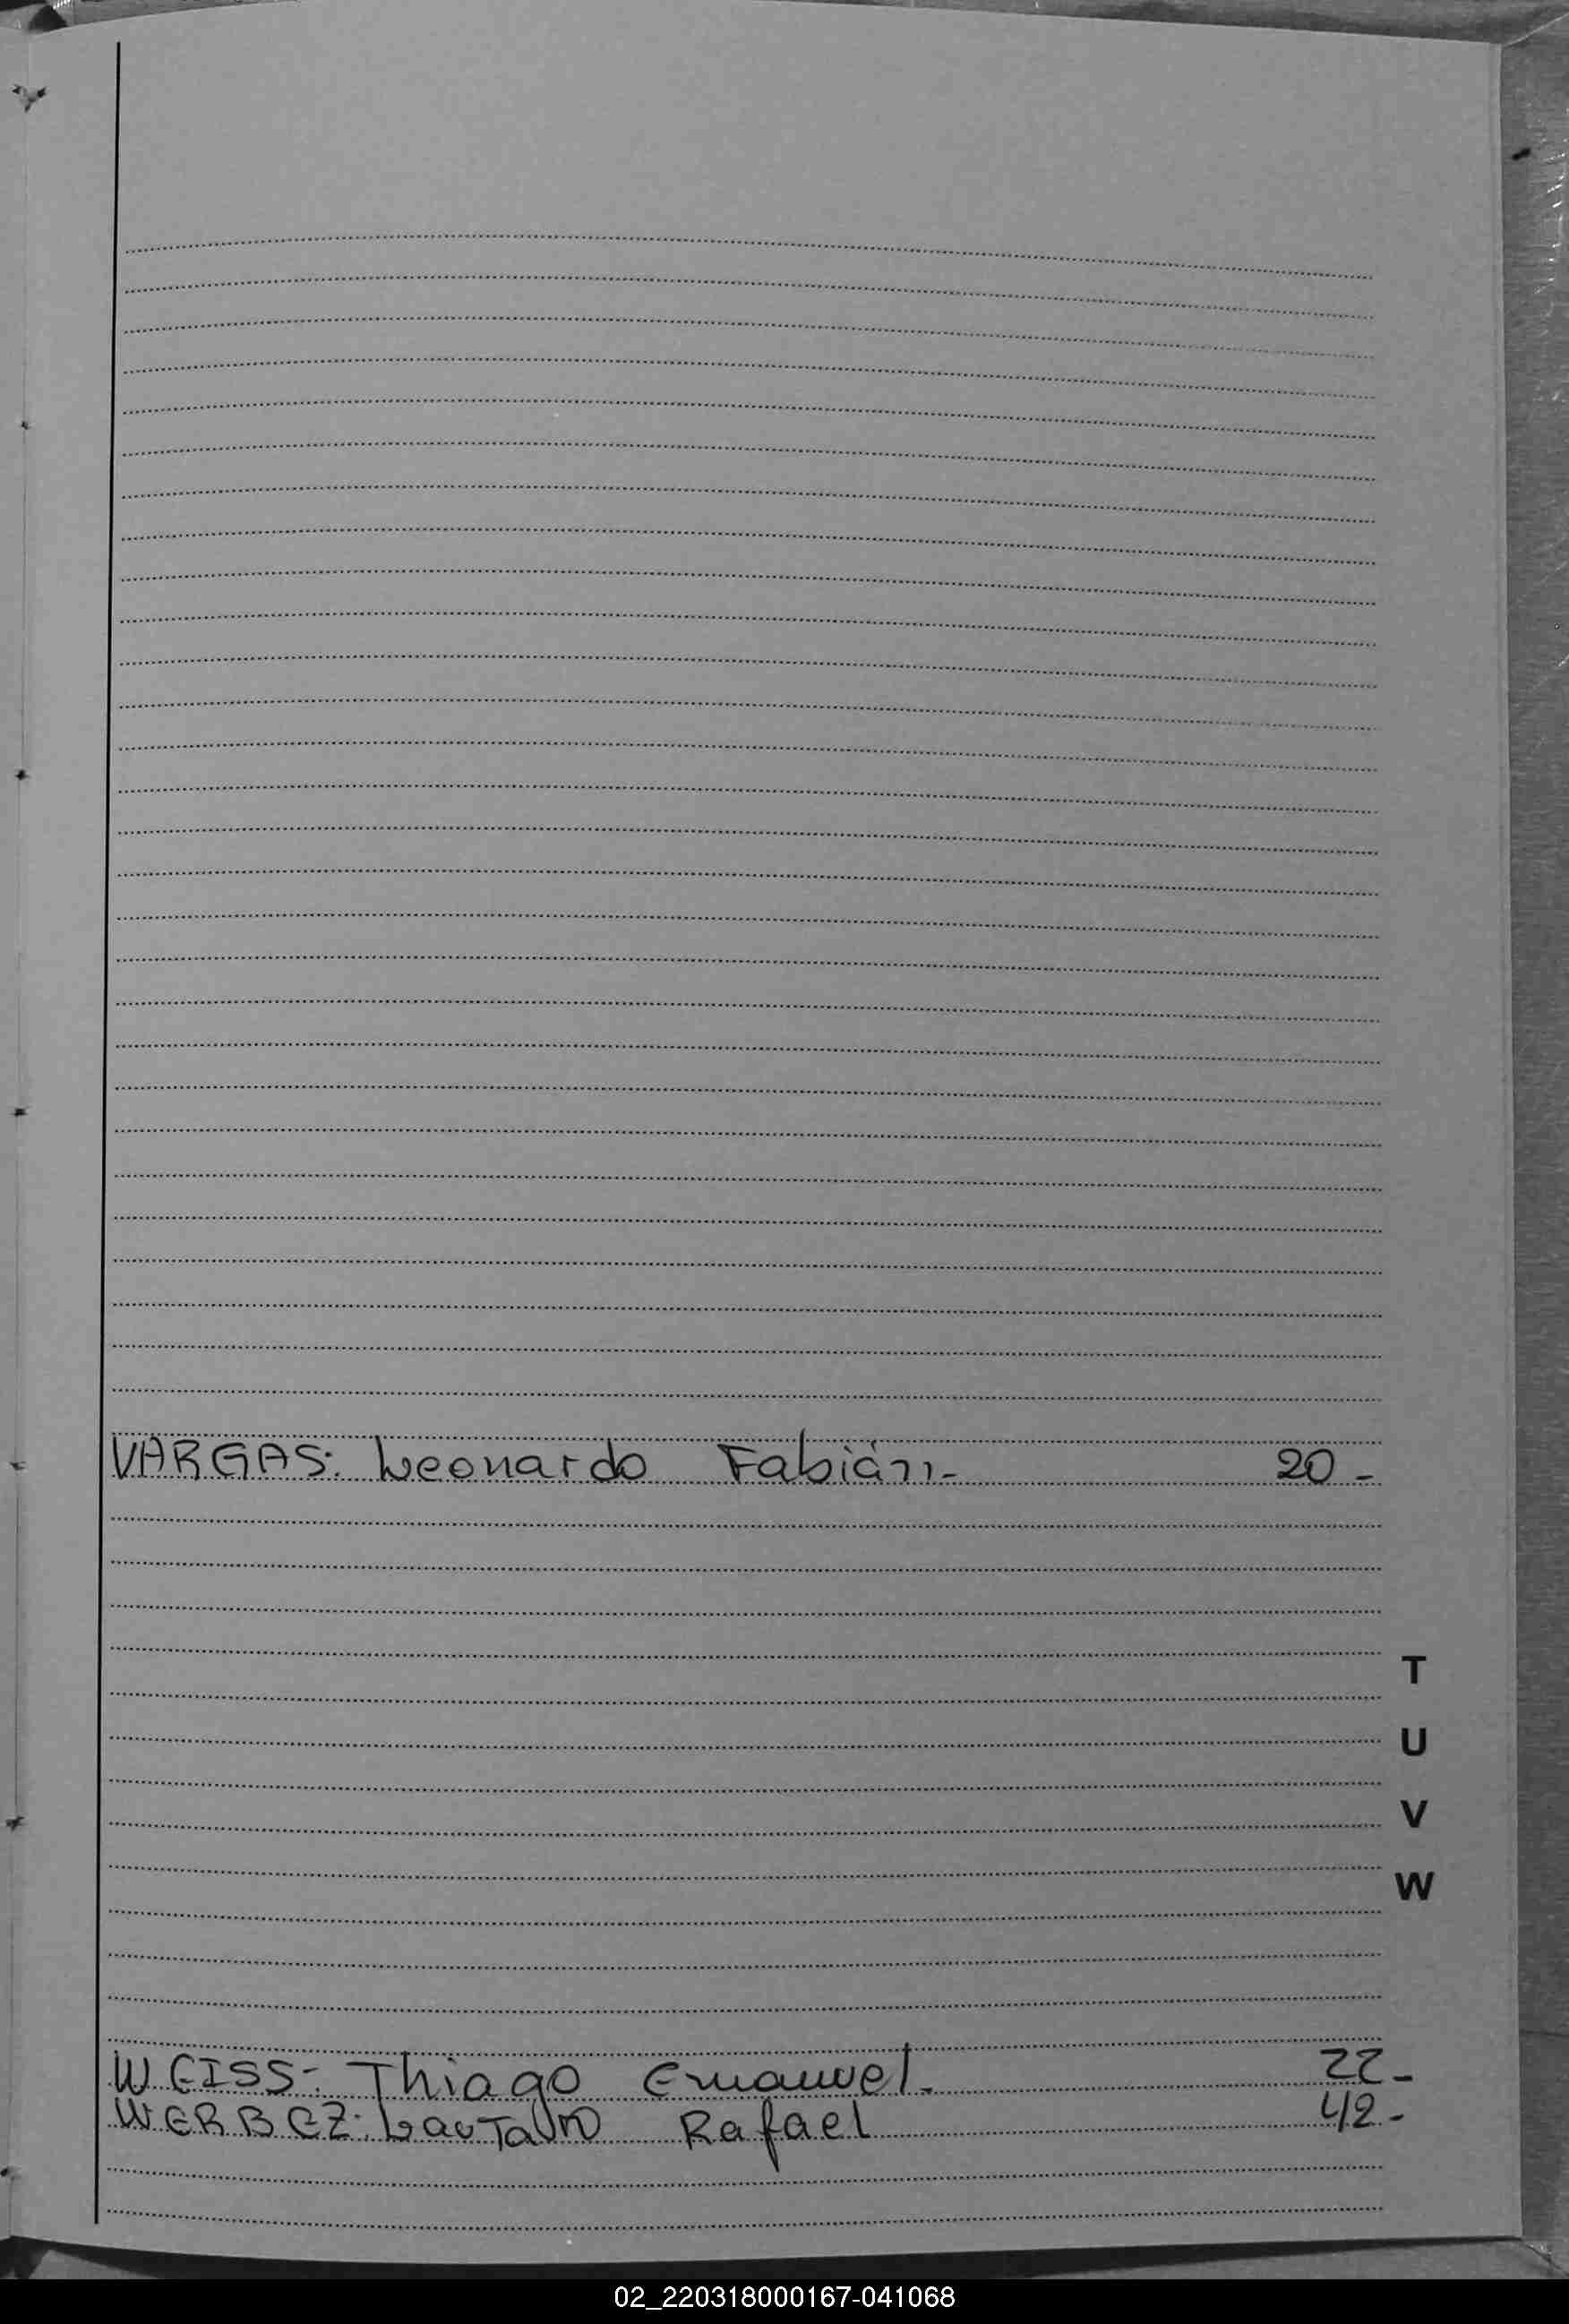 VARGAS: Leonardo Fabián - 20 -
T
U
V
W
WEISS: Thiago Emanuel. 22 -
WERBEZ: Lautaro Rafael 42 -
02_220318000167-041068